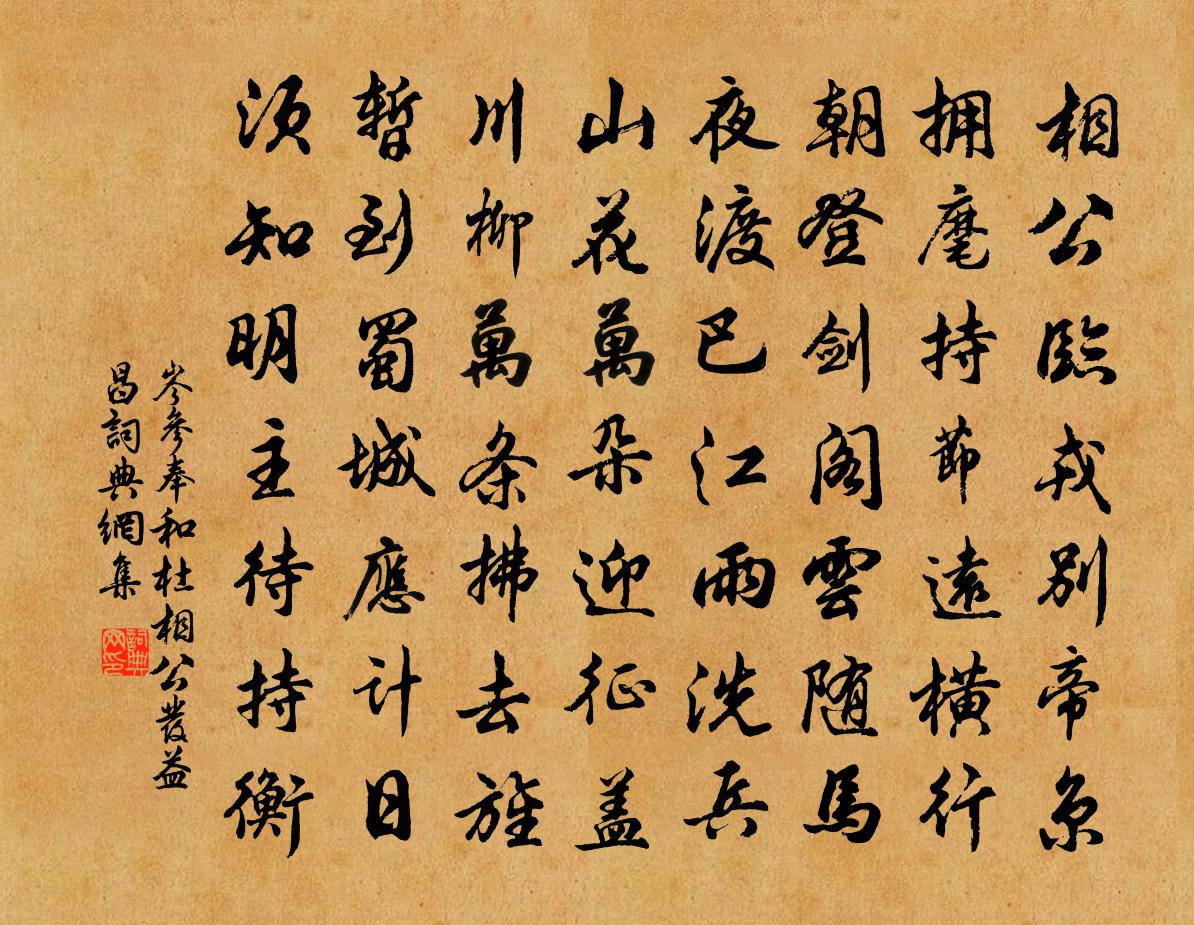 相公臨戎別帝京
拥麾持節遠橫行
朝登剑阁雲随馬
夜渡巴江雨洗兵
山花萬朵迎征盖
川柳萬条拂去旌
暫到蜀城應计日
须知明主待持衡
岑參奉和杜相公發益
昌詞典網集
詞典网印